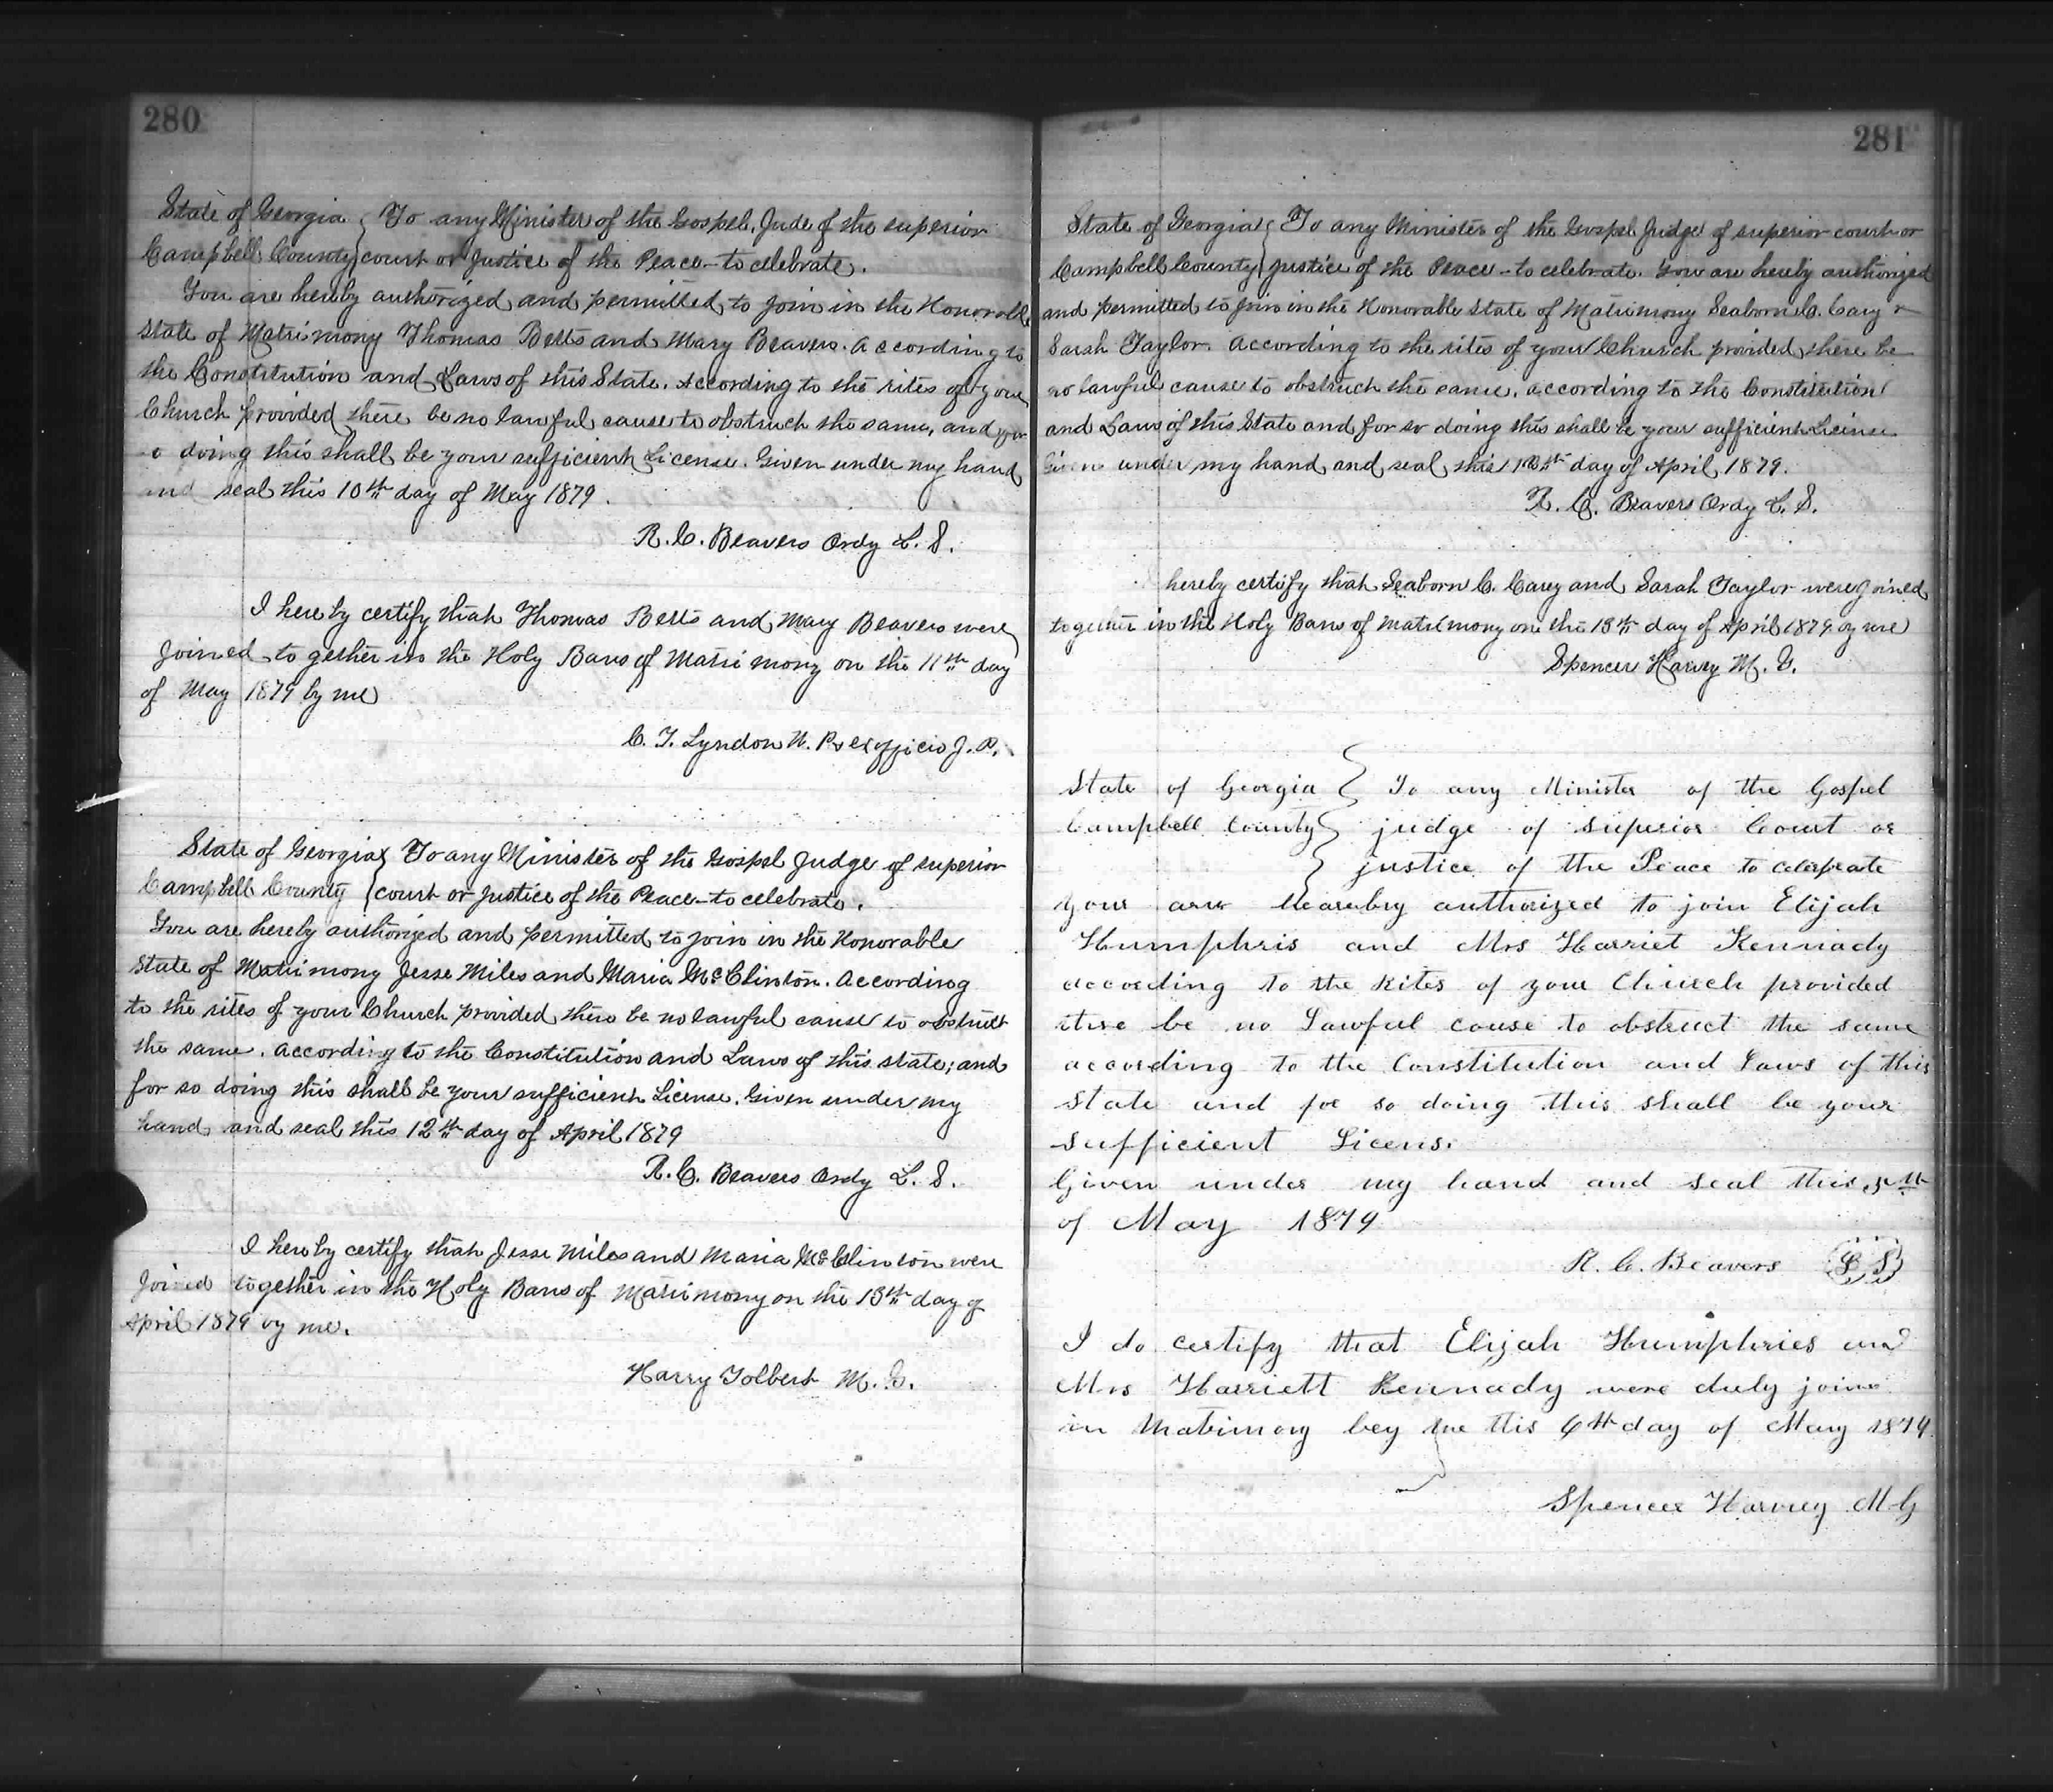 280
State of Georgia } To any Minister of the Gospel, Jude of the superior
Campbell County } court or Justice of the Peace - to celebrate.
You are hereby authorized and permitted to join in the Honorable
State of Matrimony Thomas Betts and Mary Beavers. According to
the Constitution and Laws of this State. According to the rites of your
Church provided there be no lawful cause to obstruct the same, and for
so doing this shall be your sufficient License. Given under my hand
and seal this 10th day of May 1879.
R. C. Beavers Ordy L. S.
I hereby certify that Thomas Betts and Mary Beavers were
Joined to gether in the Holy Bans of Matrimony on the 11th day
of May 1879 by me
C. T. Lyndon N. P & exofficio J. P.
State of Georgia } To any Minister of the Gospel Judge of superior
Campbell County } court or Justice of the Peace - to celebrate.
You are hereby authorized and permitted to join in the Honorable
State of Matrimony Jesse Miles and Maria McClinton. According
to the rites of your Church provided there be no lawful cause to obstruct
the same. According to the Constitution and Laws of this state; and
for so doing this shall be your sufficient License. Given under my
hand and seal this 12th day of April 1879
R. C. Beavers Ordy L. S.
I hereby certify that Jesse Miles and Maria McClinton were
Joined together in the Holy Bans of Matrimony on the 13th day of
April 1879 by me.
Harry Tolbert M. G.
281
State of Georgia { To any Minister of the Gospel Judge of superior court or
Campbell County } Justice of the Peace - to celebrate. You are hereby authorized
and permitted to join in the Honorable State of Matrimony Seaborn C. Cary &
Sarah Taylor. According to the rites of your Church provided there be
no lawful cause to obstruct the same. according to the Constitution
and Laws of this State and for so doing this shall be your sufficient License
Given under my hand and seal this day of April 1879.
R. C. Beavers Ordy L. S.
hereby certify that Seaborn C. Carey and Sarah Taylor were Joined
together in the Holy Bans of Matrimony on the 13th day of April 1879 by me
Spencer Harvey M. G.
State of Georgia } To any Minister of the Gospel
Campbell County } judge of Superior Court or
} justice of the Peace to celebrate
your are Hearaby authorized to join Elijah
Humphris and Mrs Harriet Kennady
according to the Rites of your Church provided
there be no Lawful cause to obstruct the same
according to the Constitution and Laws of this
State and for so doing this shall be your
sufficient Licens.
Given under my hand and seal this 5th
of May 1879
R. C. Beavers L S
I do certify that Elijah Humphries and
Mrs Harriett Kennady were duly joine
in Matrimony bey me this 6th day of May 1879.
Spencer Harvey M G